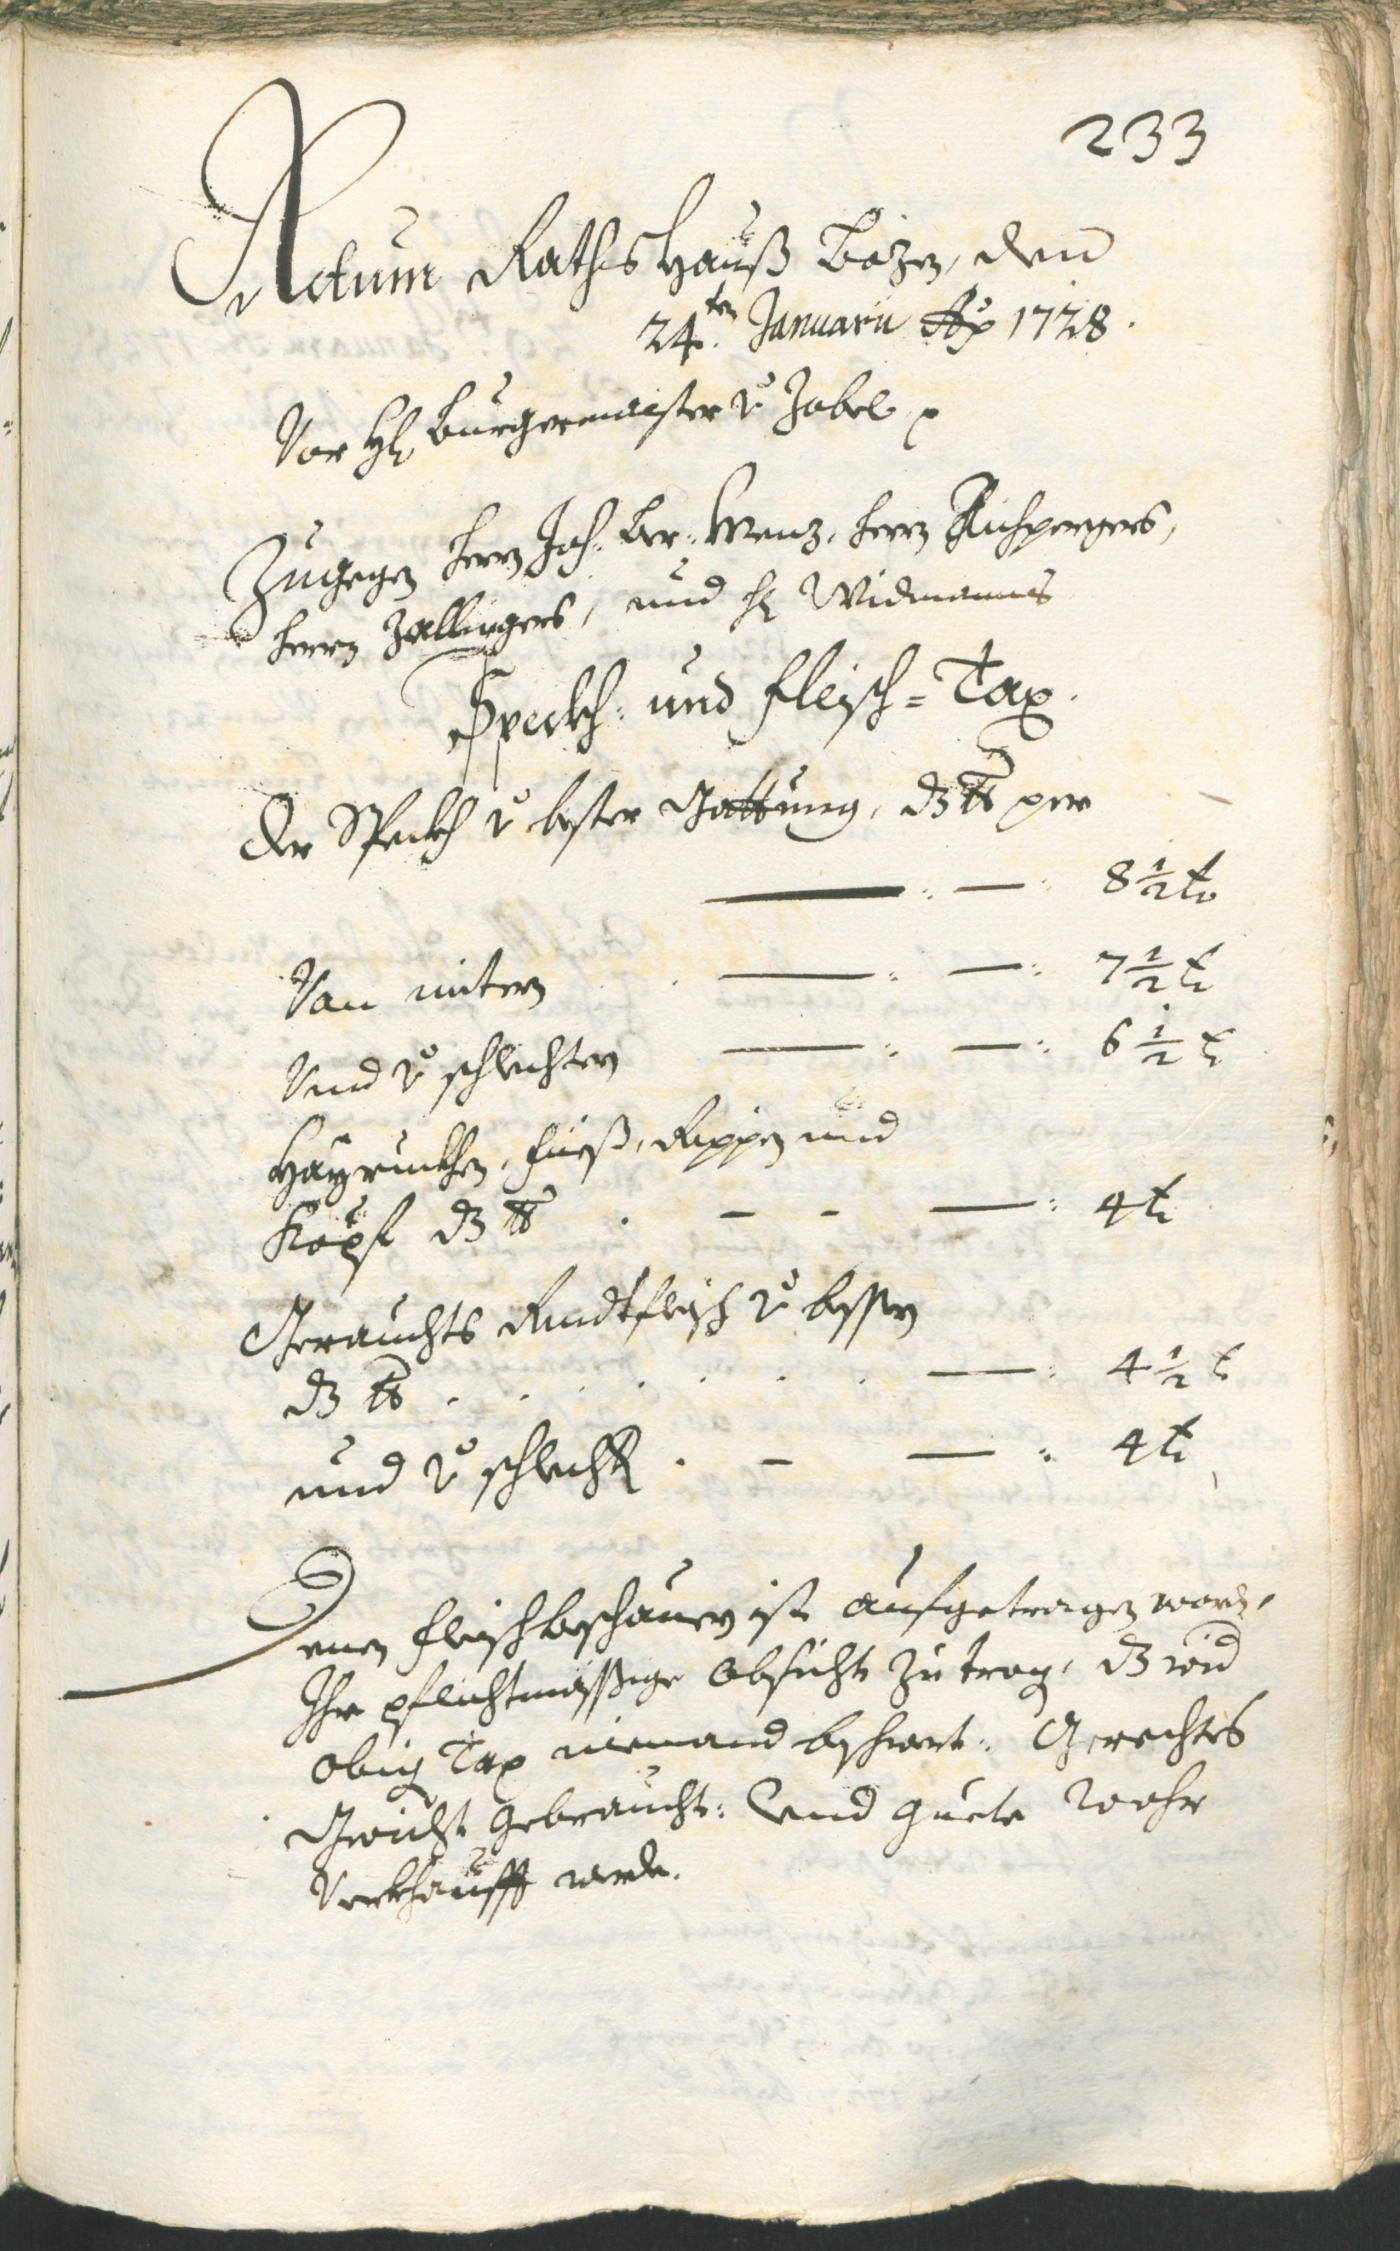 233
Actum Rathshauß Bozen, den
24.ten Januarii Ao 1728.
Vor Hl Burgermaister v. Zobel p
Zugegen herrn Joh: Menz, herrn
herrn Zallingers, und hl Widmanns
Speckh: und Fleisch=Tax.
Der Speckh v. bester Gattung, dz ℔ per
8 1/2 kr
Von mitern 7 1/2 kr
Und v. schlechten 6 1/2 kr
Hayruckhen, Fieß, Rippen und
Köpf dz ℔ 4 kr
Gerauchts Rindtfleisch v. bessern
dz ℔ 4 1/2 kr
und v. schlecht 4 kr
Denen Fleischbeschauern ist aufgetragen word,
Ihr pflichtmässige obsicht zu trag, dz wid
obig Tax niemand beschwert: Gerechtes
Gewicht gebraucht: Und guete wahr
Verkhaufft werde.